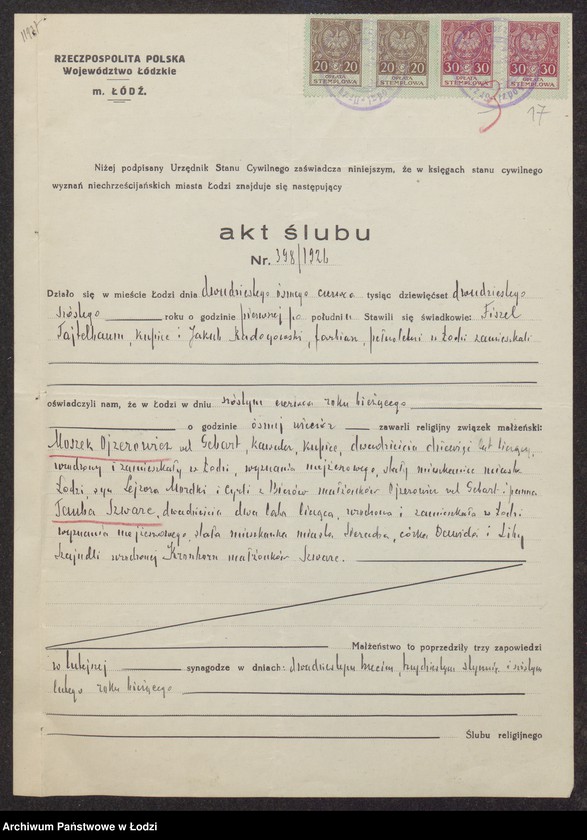 11927
20 20 20 20 30 30 30 30
OPŁATA STEMPLOWA OPŁATA STEMPLOWA OPŁATA STEMPLOWA OPŁATA STEMPLOWA
RZECZPOSPOLITA POLSKA
Województwo Łódzkie
m. ŁÓDŹ.
17
Niżej podpisany Urzędnik Stanu Cywilnego zaświadcza niniejszym, że w księgach stanu cywilnego
wyznań niechrześcijańskich miasta Łodzi znajduje się następujący
akt ślubu
Nr. 398/1926
Działo się w mieście Łodzi dnia dwudziestego ósmego czerwca tysiąc dziewięćset dwudziestego
szóstego roku o godzinie pierwszej po południu Stawili się świadkowie: Fiszel
Fajtelbaum, kupiec i Jakub farbiarz, pełnoletni w Łodzi zamieszkali
oświadczyli nam, że w Łodzi w dniu szóstym czerwca roku bieżącego
o godzinie ósmej wieczór zawarli religijny związek małżeński:
Moszek Ojzerowicz vel Gebart, kawaler, kupiec, dwadzieścia dziewięć lat liczący,
urodzony i zamieszkały w Łodzi, wyznania mojżeszowego, stały mieszkaniec miasta
Łodzi, syn Lejzora Mordki i Cyrli z małżonków Ojzerowicz vel Gebart i panna
Tauba Szwarc, dwadzieścia dwa lata licząca, urodzona i zamieszkała w Łodzi
wyznania mojżeszowego, stała mieszkanka miasta Sieradza, córka Dawida i
Szajndli urodzonej Kronhorn małżonków Szwarc.
Małżeństwo to poprzedziły trzy zapowiedzi
w tutejszej synagodze w dniach: dwudziestym trzecim, trzydziestym stycznia i szóstym
lutego roku bieżącego
Ślubu religijnego
Archiwum Państwowe w Łodzi